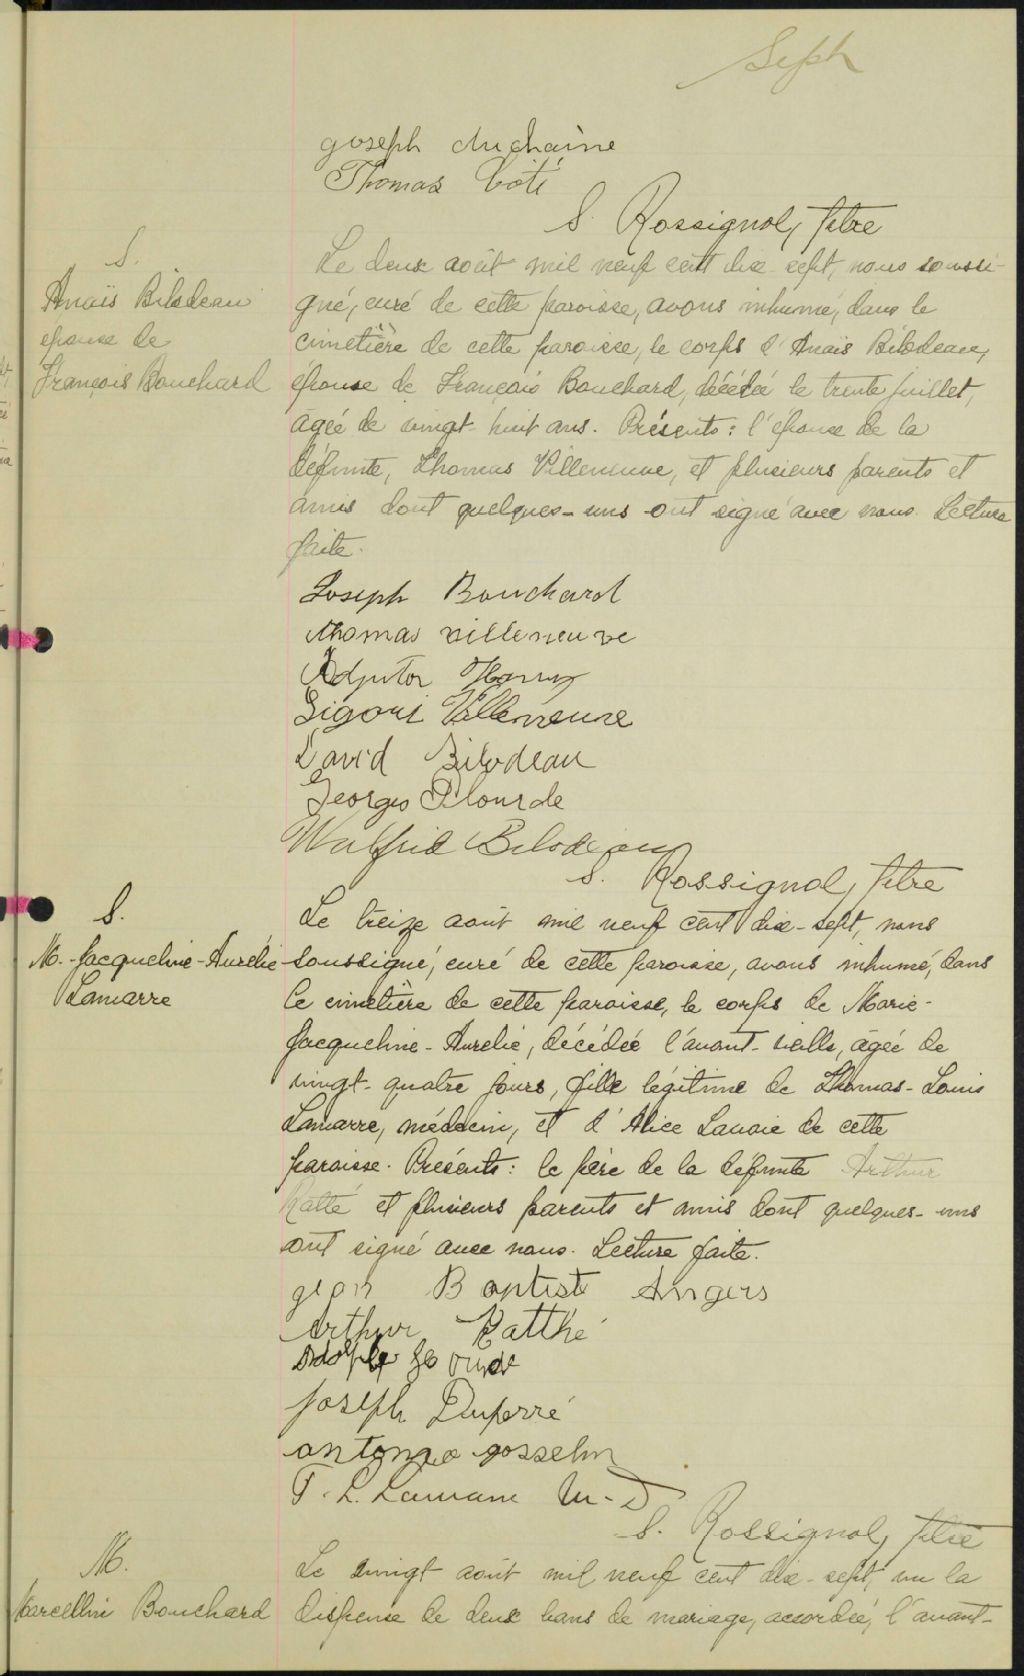 Seph
Joseph duchaine
Thomas Coté
S. Rossignol, ptre
S.
Anaïs Bilodeau
épouse de
François Bouchard
Le deux août mil neuf cent dix-sept, nous soussi-
gné, curé de cette paroisse, avons inhumé, dans le
cimetière de cette paroisse, le corps d'Anaïs Bilodeau,
épouse de François Bouchard, décédée le trente juillet,
âgée de vingt-huit ans. Présents: l'époux de la
défunte, Thomas Villeneuve, et plusieurs parents et
amis dont quelques-uns ont signé avec nous. Lecture
faite.
Joseph Bouchard
thomas villeneuve
Adjutor Harvey
Ligori Villeneuve
David Bilodeau
Georges Plourde
Walfrid Bilodeau
S. Rossignol, ptre
S.
M.-Jacqueline-Aurélie
Lamarre
Le treize août mil neuf cent dix-sept, nous
soussigné, curé de cette paroisse, avons inhumé, dans
le cimetière de cette paroisse, le corps de Marie-
Jacqueline-Aurélie, décédée l'avant-veille, âgée de
vingt-quatre jours, fille légitime de Thomas-Louis
Lamarre, médecin, et d'Alice Lavoie de cette
paroisse. Présents: le père de la défunte Arthur
Ratté et plusieurs parents et amis dont quelques-uns
ont signé avec nous. Lecture faite.
jean Baptiste Angers
Arthur Ratthé
Adolphe
Joseph Duperré
antonio gosselin
T. L. Lamarre M-D
S. Rossignol, ptre
M.
Marcellin Bouchard
Le vingt août mil neuf cent dix-sept, vu la
dispense de deux bans de mariage, accordée, l'avant-